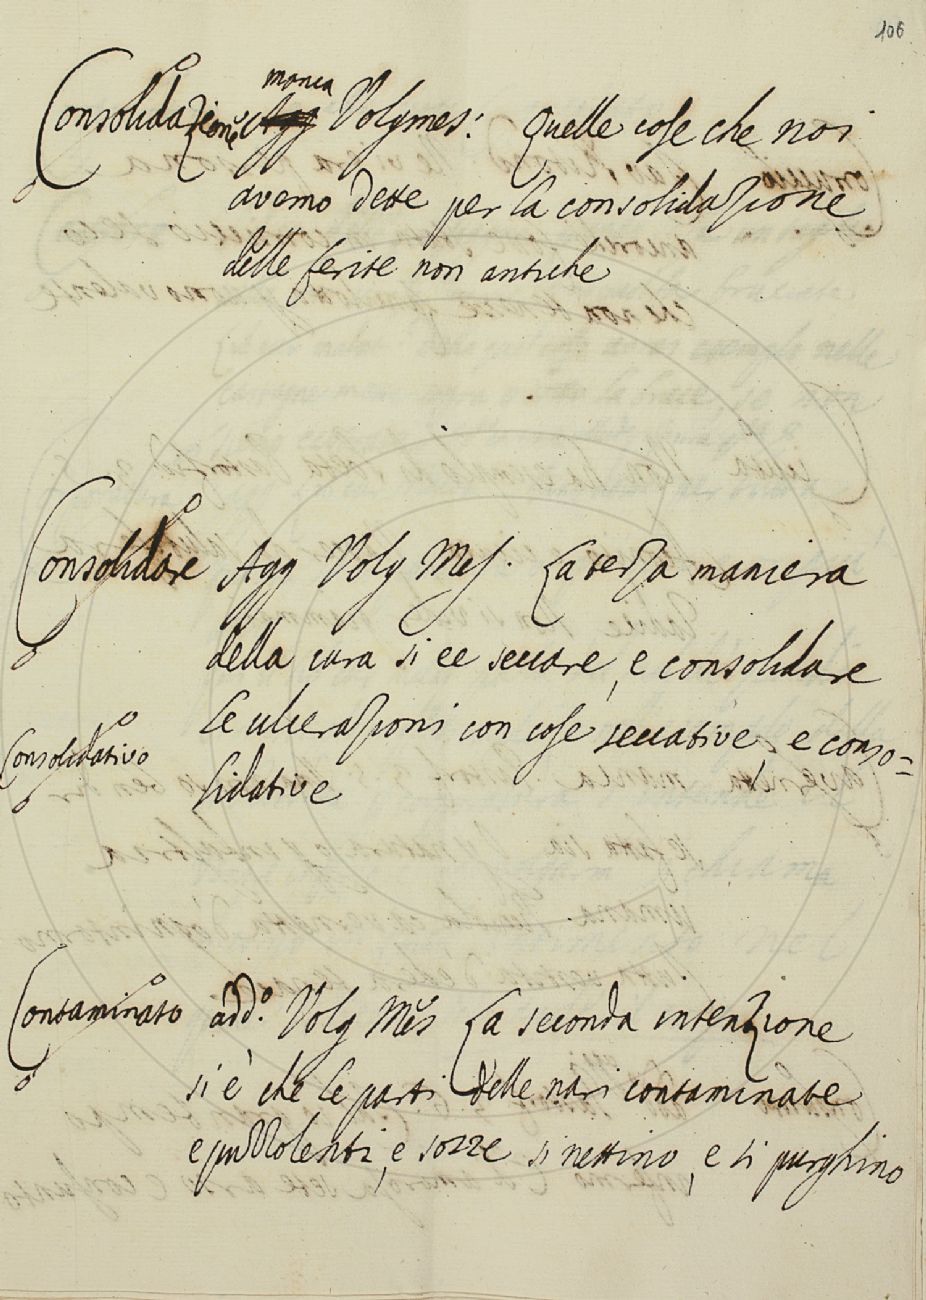 106
manca
Consolidazione ~~Agg~~ Volg mes: Quelle cose che noi
avemo dette per la consolidazione
delle ferite non antiche
Consolidare Agg Volg Mes. La terza maniera
della cura si ee seccare, e consolidare
le ulcerazioni con cose seccative, e conso=
Consolidativo
lidative
Contaminato add.º Volg Mes La seconda intenzione
si è che le parti delle nari contaminate
e puzzolenti, e sozze si nettino, e si purghino